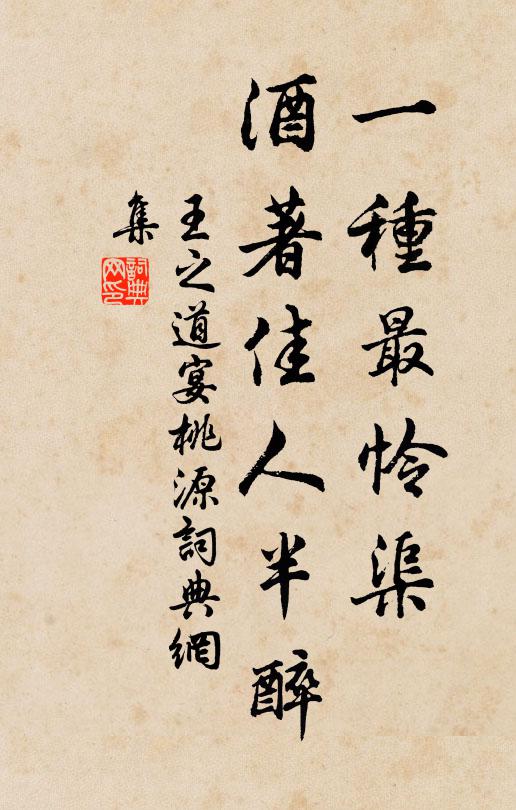 一種最怜渠
酒著佳人半醉
王之道宴桃源詞典網
集
詞典
网印